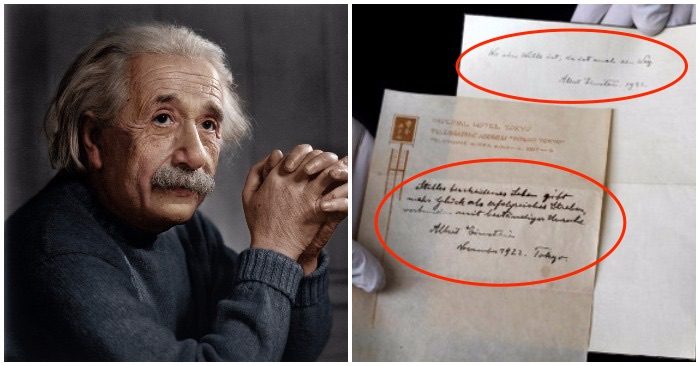 Wo ein Wille ist, da ist auch ein Weg.
Albert Einstein. 1922.
IMPERIAL HOTEL TOKYO
TELEGRAPHIC ADDRESS TOKYO
TELEPHONE
Stilles bescheidenes Leben gibt
mehr Glück als erfolgreiches Streben,
verbunden mit beständiger Unruhe.
Albert Einstein.
November 1922. Tokyo.